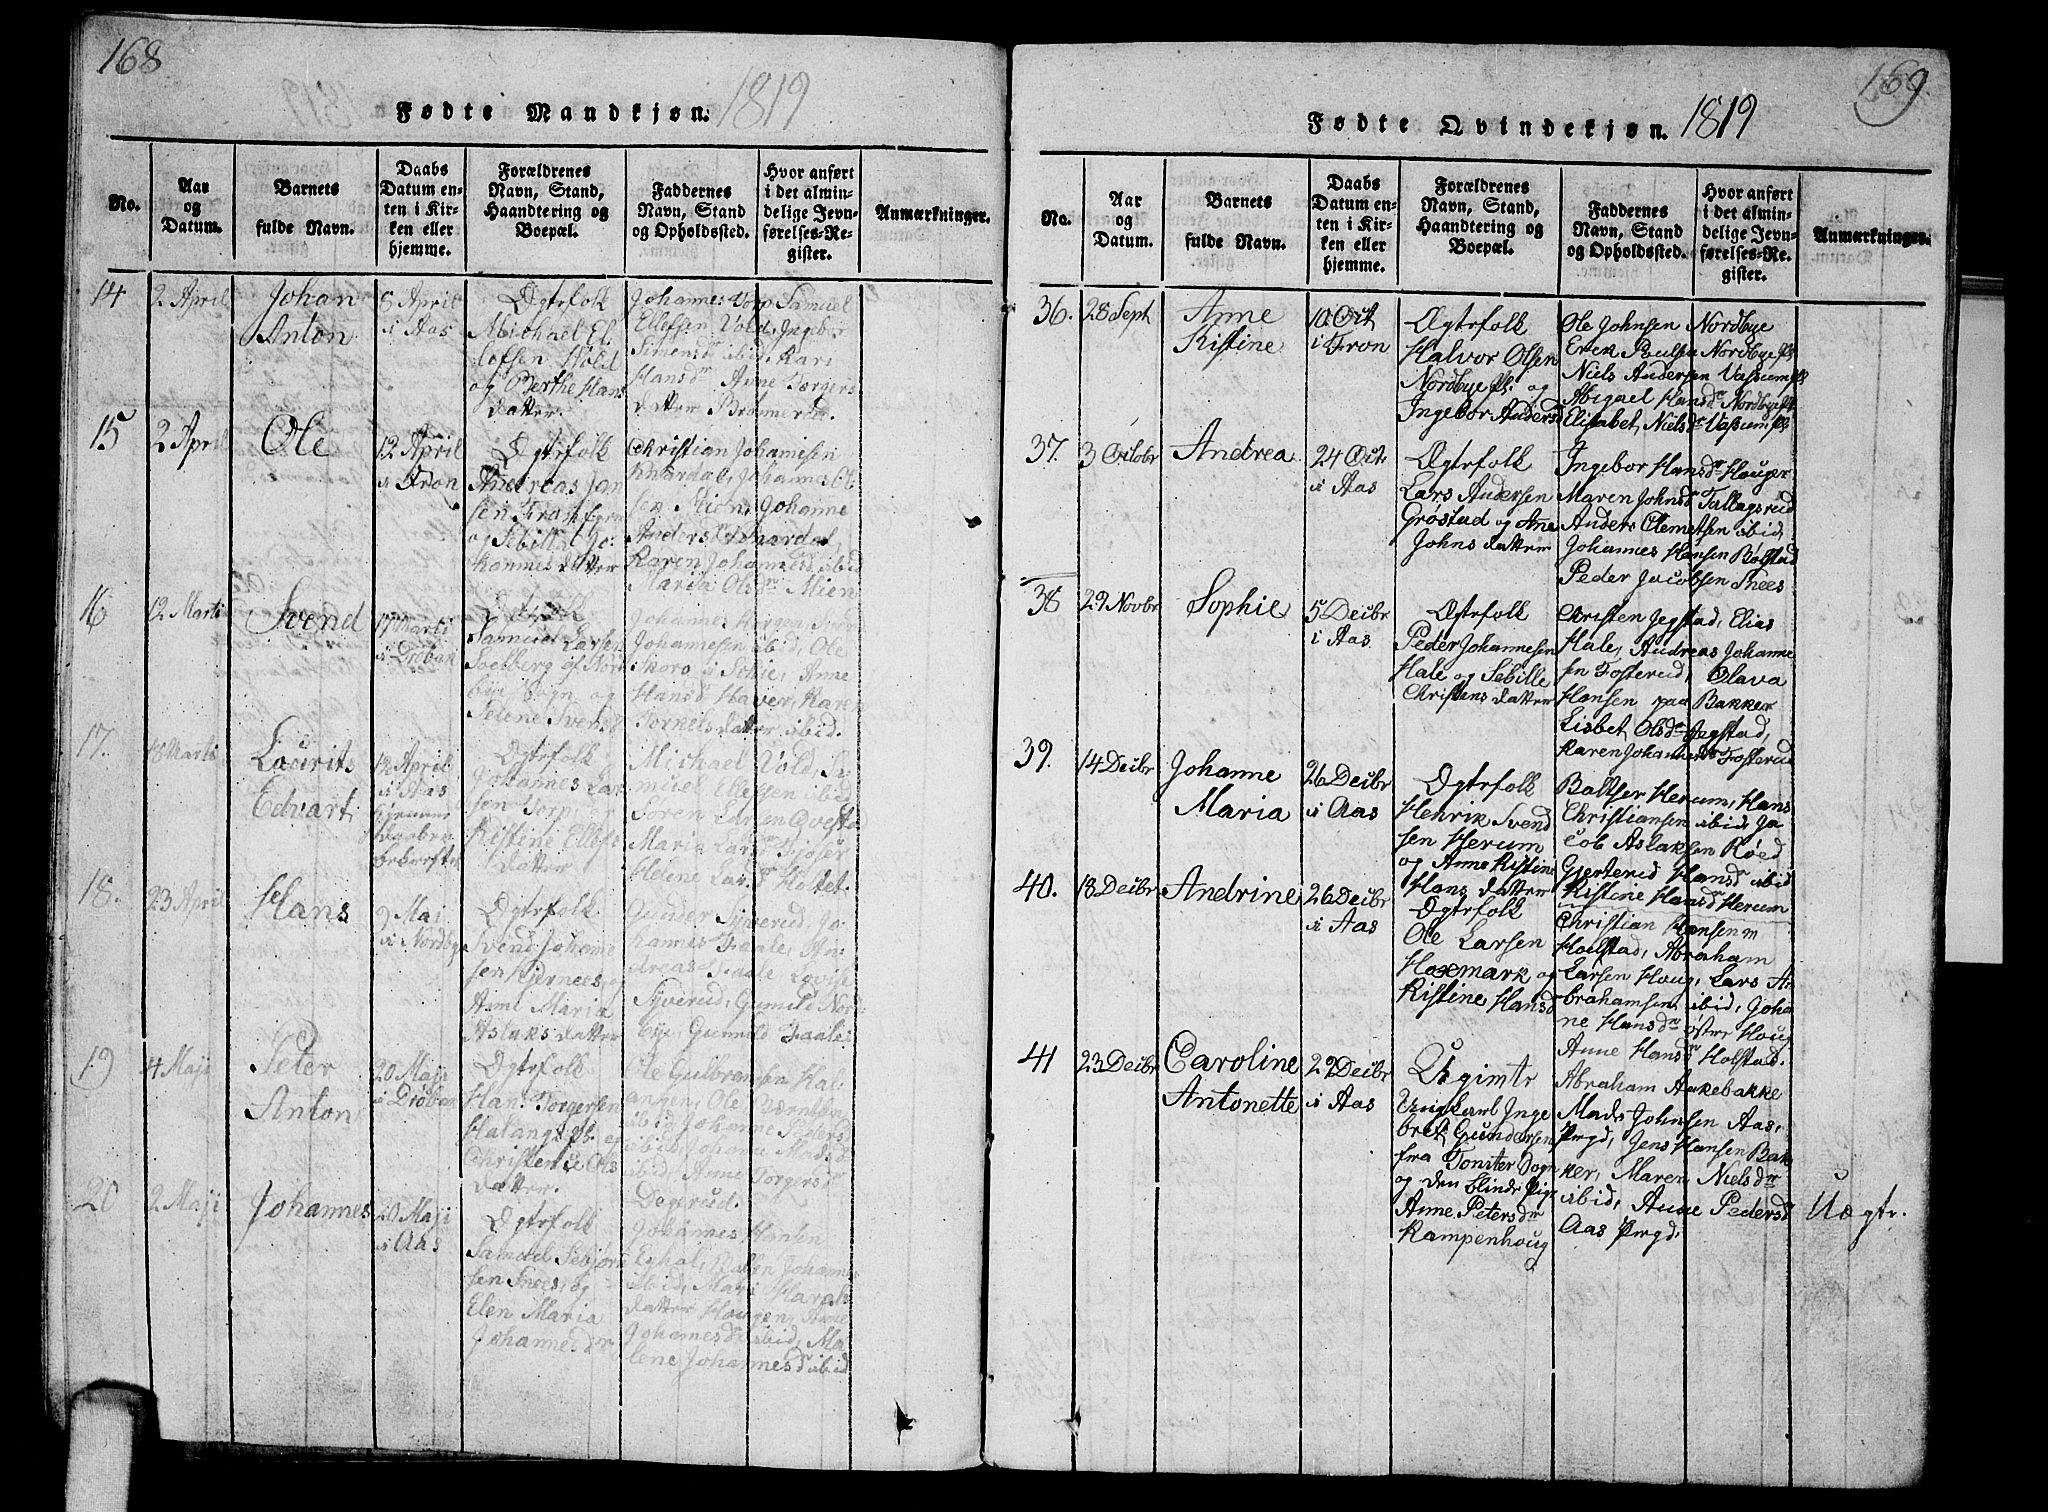 168
Fødte Mandkjøn. 1819
No.
Aar
og
Datum.
Barnets
fulde Navn.
Daabs
Datum en-
ten i Kir-
ken eller
hjemme.
Forældrenes
Navn, Stand,
Haandtering og
Boepæl.
Faddernes
Navn, Stand
og Opholdssted.
Hvor anført
i det almin-
delige Jevn-
førelses-Re-
gister.
Anmærkninger.
14
2 April
Johan
Anton
8 April
i Aas
Ægtefolk
Michael El-
lefsen Vold
og Berthe Hans
datter.
Johannes Torp Samuel
Ellefsen Vold, Ingebor
Simensdr ibid, Kari
Hansdr Anne Torgers
datter
15
2 April
Ole
12 April
i Fron
Ægtefolk
Andreas Jan
sen
og Sebille Jo-
hannesdatter
Christian Johannesen
Johannes Ol
sen Johanne
Anders
Karen Johannesdr ibid
Maria Olsdr
16
12 Marti
Svend
17 Marti
i Drøbak
Ægtefolk
Samuel Larsen
Solberg af Nord
bye Sogn og
Helene Svensd
Johannes Svend
Johannesen ibid, Ole
Skoro i Schie, Anne
Hansd Haver, Karen
datter ibid.
17.
18 Marti
Laurits
Edvart
12 April
i Aas
Hjemme
daaben
bekræftet
Ægtefolk
Johannes Lar
sen Torp,
Kistine Ellefs
datter
Michael Vold, Sa-
muel Ellefsen ibid
Soren Larsen Qvestad
Maria Larsdr
Helene Larsdr Holtet.
18.
23 April
Hans
9 Mai
i Nordby
Ægtefolk
Svend Johanne
sen Kjernees, og
Anne Maria
Aslaksdatter
Gunder Syverud, Jo-
hannes Faale, An-
dreas Faale Lovise
Syverud, Gunnild Nord
bye, Gunnild Faale
19
4 Maji
Peter
Anton
20 Maji
i Drøbak
Ægtefolk
Hans Torgersen
Halangspl. og
Christense Ols
datter.
Ole Gulbransen Hal-
angen, Ole
ibid Johanne Peders
ibid Johanne Madsd
ibid, Anne Torgersdr
Degerud.
20
2 Maji
Johannes
20 Maji
i Aas
Ægtefolk
Samuel
sen Snees, og
Elen Maria
Johannesdr
Johannes Hansen
Johannes
ibid, Mari
datter Hougen, Anne
Johannesdr ibid, Ma-
lene Johannesdr ibid
169
Fødte Qvindekjøn. 1819
No.
Aar
og
Datum.
Barnets
fulde Navn.
Daabs
Datum en-
ten i Kir-
ken eller
hjemme.
Forældrenes
Navn, Stand,
Haandtering og
Boepæl.
Faddernes
Navn, Stand
og Opholdssted.
Hvor anført
i det almin-
delige Jevn-
førelses-Re-
gister.
Anmærkninger.
36.
28 Sept
Anne
Kistine
10 Oct
i Fron
Ægtefolk
Halvor Olsen
Nordbye pl. og
Ingebor Andersd
Ole Johnsen Nordbye
Erek Poulsen Nordbye pl
Niels Andersen Vassum pl
Abigael Hansdr Nordbye pl
Elisabet Nielsdr Vassum pl
37.
3 Octobr
Andrea
24 Oct
i Aas
Ægtefolk
Lars Andersen
Grøstad og Ane
Johnsdatter
Ingebor Hansdr Houger
Maren Johnsd Tallagsrud
Anders Clemetsen ibid,
Johannes Hansen Bølstad
Peder Jacobsen Snees
38
29 Novbr
Sophie
5 Decbr
i Aas
Ægtefolk
Peder Johannesen
Hale og Sebille
Christensdatter
Christen Jegstad, Elias
Hale, Andreas Johanne
sen Fosterud, Olava
Hansen paa Bakker
Lisbet Olsdr Jegstad,
Karen Johannesdr Fosterud
39.
14 Decbr
Johanne
Maria
26 Decbr
i Aas
Ægtefolk
Henrik Svend
sen Herum
og Anne Kistine
Hansdatter
Baltser Herum, Hans
Christiansen ibid, Ja
cob Aslaksen Røed
Gjerterud Hansdr ibid
Kistine Hansdr Herum
40.
18 Decbr
Andrine
26 Decbr
i Aas
Ægtefolk
Ole Larsen
Haxmark og
Kistine Hansd
Christian Hansen
Holstad, Abraham
Larsen Houg, Lars A-
brahamsen ibid, Johan
ne Hansdr Øster Houg
Anne Hansdr Holstad.
41
23 Decbr
Caroline
Antonette
29 Decbr
i Aas
Uegivte
Ungkarl Inge
bret Gundersen
fra Tonster Sogn
og den blinde Pige
Anne Petersdr
Kampenhoug
Abraham Aakebakke
Mads Johnsen Aas,
Prgd, Jens Hansen Bak
ker, Maren Nielsdr
ibid, Anne Pedersd
Aas Prgd,
Uægte.